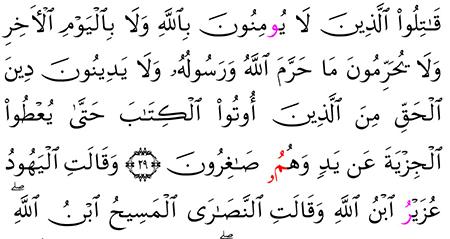 قَٰتِلُوا۟ ٱلَّذِينَ لَا يُومِنُونَ بِٱللَّهِ وَلَا بِٱلْيَوْمِ ٱلْأَخِرِ
وَلَا يُحَرِّمُونَ مَا حَرَّمَ ٱللَّهُ وَرَسُولُهُۥ وَلَا يَدِينُونَ دِينَ
ٱلْحَقِّ مِنَ ٱلَّذِينَ أُوتُوا۟ ٱلْكِتَٰبَ حَتَّىٰ يُعْطُوا۟
ٱلْجِزْيَةَ عَن يَدٍ وَهُمُۥ صَٰغِرُونَ ﴿٢٩﴾ وَقَالَتِ ٱلْيَهُودُ
عُزَيْرُ ٱبْنُ ٱللَّهِ وَقَالَتِ ٱلنَّصَٰرَى ٱلْمَسِيحُ ٱبْنُ ٱللَّهِۖ